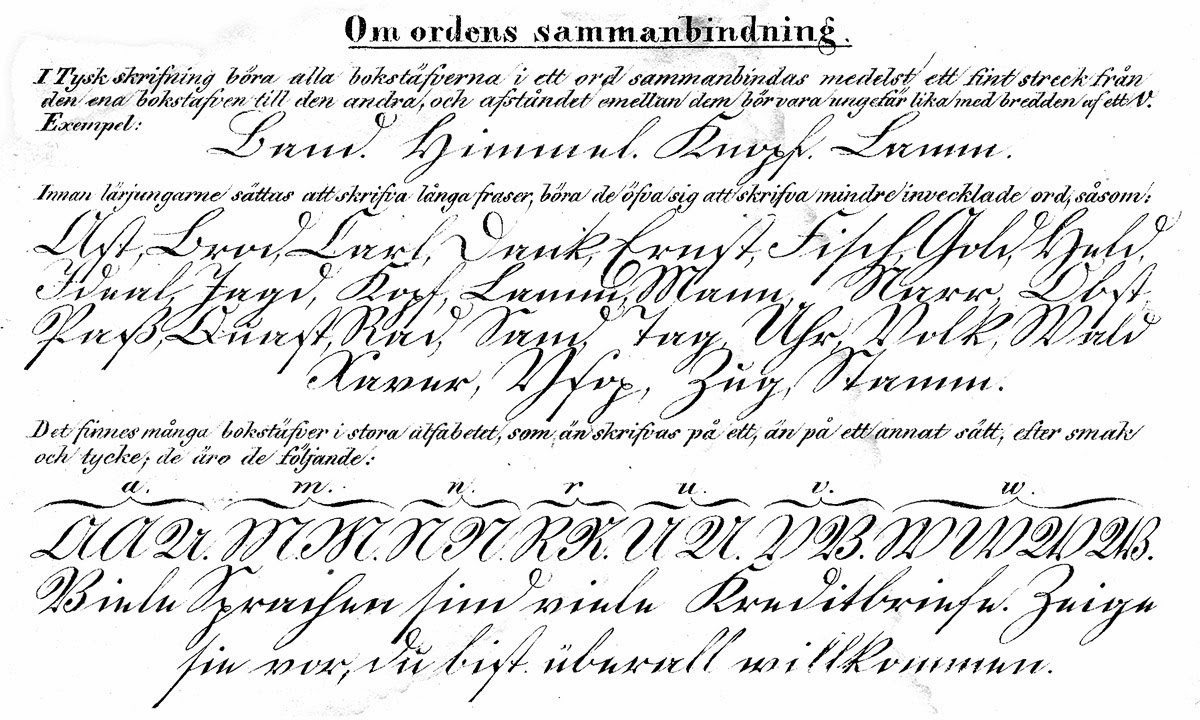 Om ordens sammanbindning.
I Tysk skrifning böra alla bokstäfverna i ett ord sammanbindas medelst ett fint streck från
den ena bokstafven till den andra, och afståndet emellan dem bör vara ungefär lika med bredden af ett V.
Exempel:
Band. Himmel. Knopf. Lamm.
Innan lärjungarne sättas att skrifva långa fraser, böra de öfva sig att skrifva mindre invecklade ord, såsom:
Ast, Brod, Carl, Dank, Ernst, Fisch, Gold, Held,
Ideal, Jagd, Kopf, Lamm, Mann, Narr, Obst,
Paß, Quast, Rad, Sand, Tag, Uhr, Volk, Wald
Xaver, Ysop, Zug, Stamm.
Det finnes många bokstäfver i stora alfabetet, som än skrifvas på ett, än på ett annat sätt, efter smak
och tycke; de äro de följande:
a. m. n. r. u. v. w.
A A A. M M. N N. R R. U U. V V. W W W W.
Viele Sprachen sind viele Kreditbriefe. Zeige
sie vor, du bist überall willkommen.